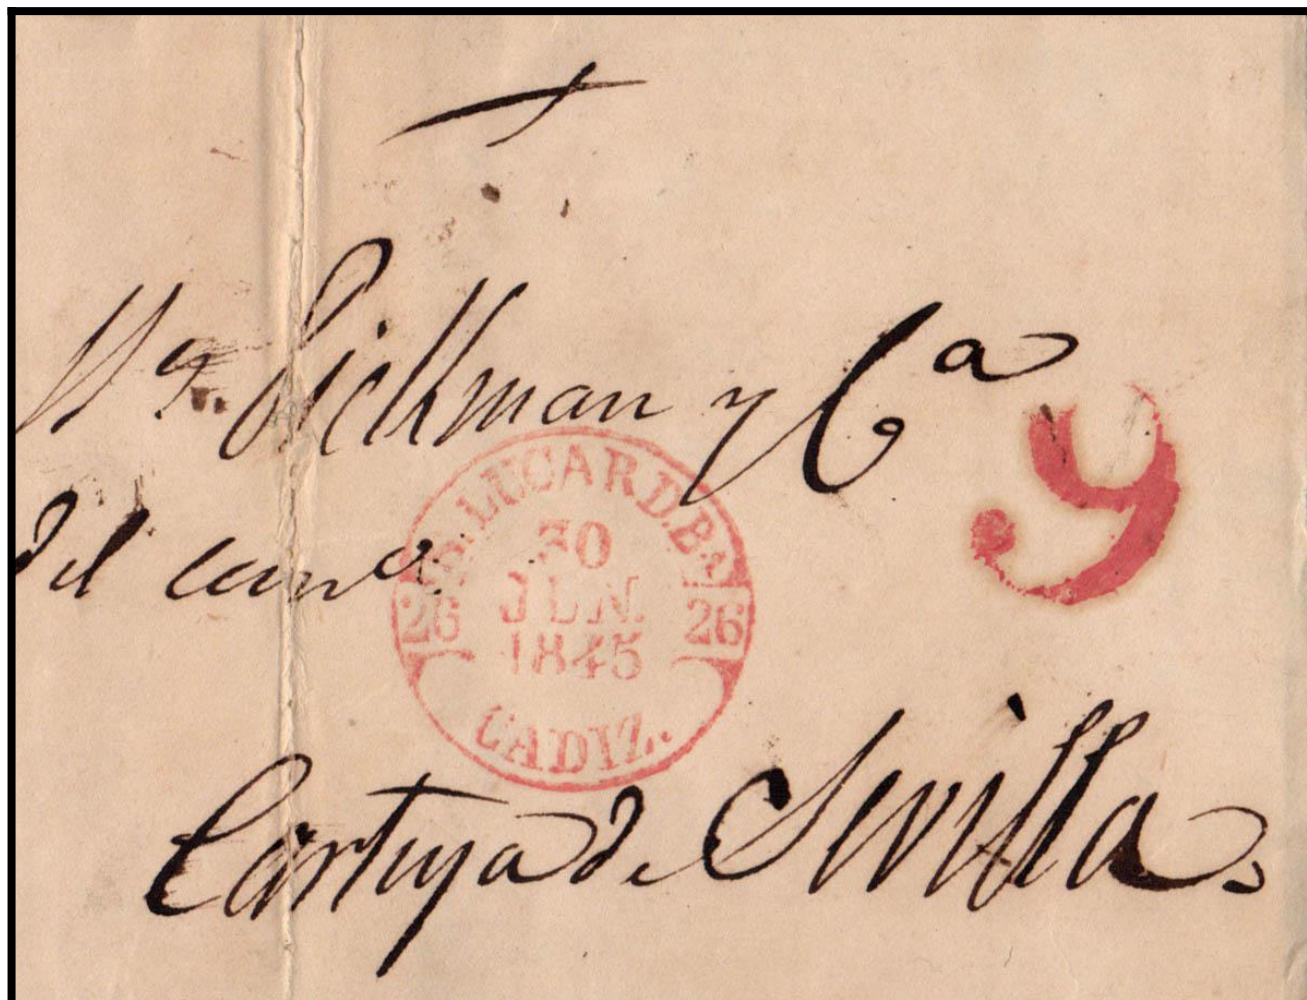 Pickman y Cª
9
del comº
Sn. LUCAR D. Ba.
30
JUN.
1845
26 26
CADIZ.
Cartuja de Sevilla